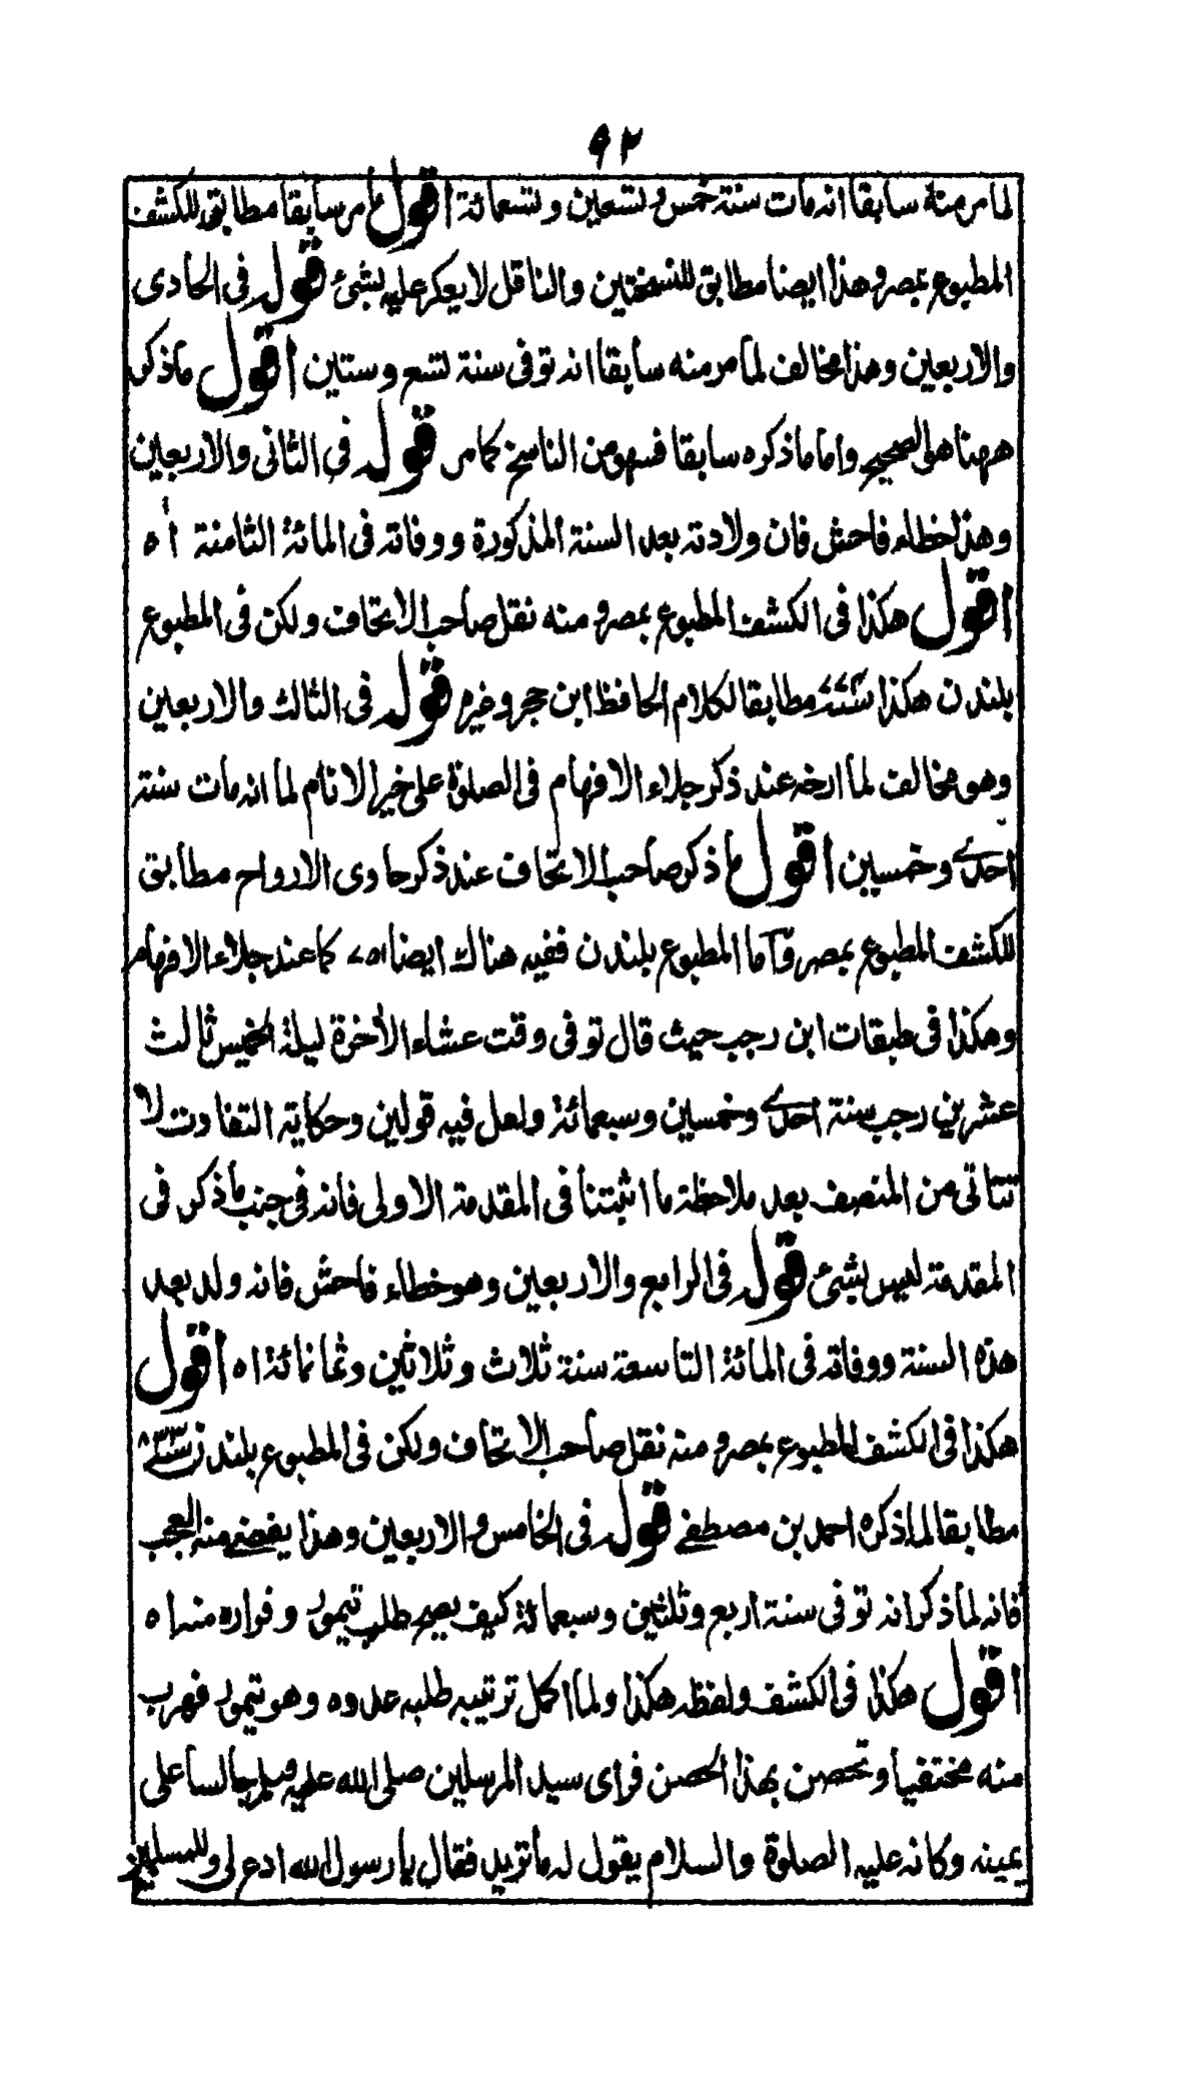 ٩٢
لما مر منه سابقا انه مات سنة خمس وتسعين وتسعمائة اقول ما مر سابقا مطابق للكشف
المطبوع بمصر وهذا ايضا مطابق للنسختين والناقل لا يعكر عليه بشئ قوله فى الحادى
والاربعين وهذا مخالف لما مر منه سابقا انه توفى سنة تسع وستين اقول ما ذكر
ههنا هو الصحيح واما ما ذكره سابقا فسهو من الناسخ كما مر قوله فى الثانى والاربعين
وهذا خطاء فاحش فان ولادته بعد السنة المذكورة ووفاته فى المائة الثامنة اه
اقول هكذا فى الكشف المطبوع بمصر ومنه نقل صاحب الاتحاف ولكن فى المطبوع
بلندن هكذا مطابقا لكلام الحافظ ابن حجر وغيره قوله فى الثالث والاربعين
وهو مخالف لما ارخه عند ذكر جلاء الافهام فى الصلوة على خير الانام لما انه مات سنة
احدى وخمسين اقول ما ذكر صاحب الاتحاف عند ذكر حاوى الارواح مطابق
للكشف المطبوع بمصر واما المطبوع بلندن ففيه هناك ايضا ٧٥١ كما عند جلاء الافهام
وهكذا فى طبقات ابن رجب حيث قال توفى وقت عشاء الأخرة ليلة الخميس ثالث
عشرين رجب سنة احدى وخمسين وسبعمائة ولعل فيه قولين وحكاية التفاوت لا
تتاتى من المنصف بعد ملاحظة ما اثبتنا فى المقدمة الاولى فانه فى جنب ما ذكر فى
المقدمة ليس بشئ قوله فى الرابع والاربعين وهو خطاء فاحش فانه ولد بعد
هذه السنة ووفاته فى المائة التاسعة سنة ثلاث وثلاثين وثمانمائة اه اقول
هكذا فى الكشف المطبوع بمصر ومنه نقل صاحب الاتحاف ولكن فى المطبوع بلندن
مطابقا لما ذكره احمد بن مصطفے قوله فى الخامس والاربعين وهذا يفضے منه العجب
فانه لما ذكر انه توفى سنة اربع وثلثين وسبعمائة كيف يصح طلب تيمور وفراره منه اه
اقول هكذا فى الكشف ولفظه هكذا ولما اكمل ترتيبه طلبه عدوه وهو تيمور فهرب
منه مختفيا وتحصن بهذا الحصن فراى سيد المرسلين صلى الله عليه وسلم جالسا على
يمينه وكانه عليه الصلوة والسلام يقول له ما تريد فقال يا رسول الله ادع لى وللمسلمين